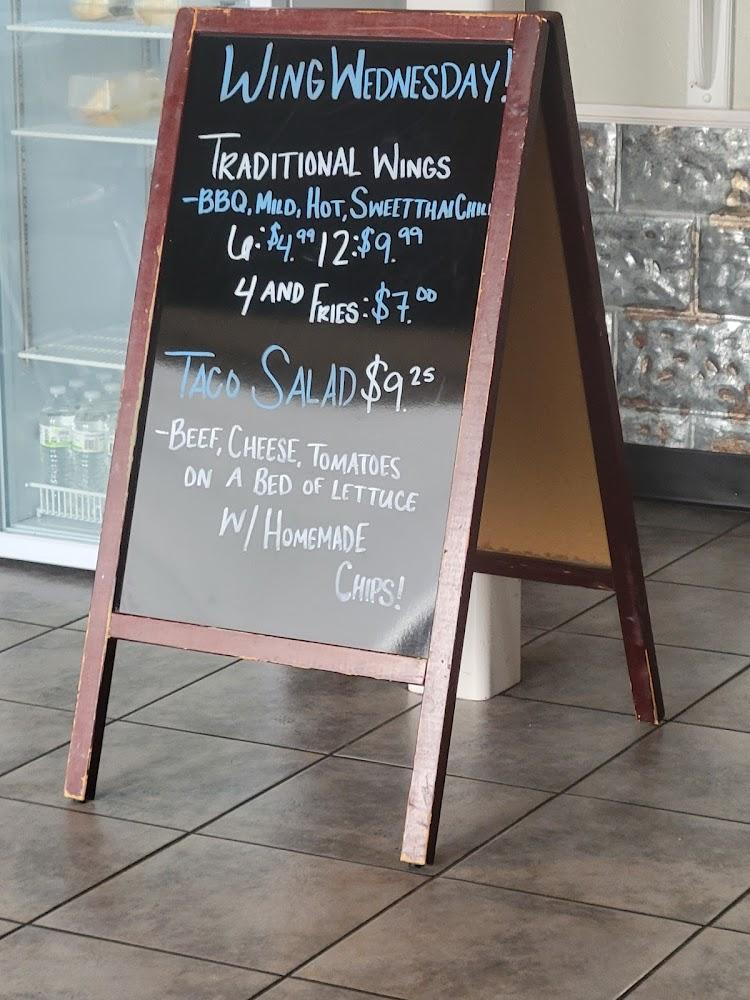 WING WEDNESDAY!
TRADITIONAL WINGS
-BBQ, MILD, HOT, SWEET THAI CHILI
6: $4.99 12: $9.99
4 AND FRIES: $7.00
TACO SALAD $9.25
-BEEF, CHEESE, TOMATOES
ON A BED OF LETTUCE
W/ HOMEMADE
CHIPS!